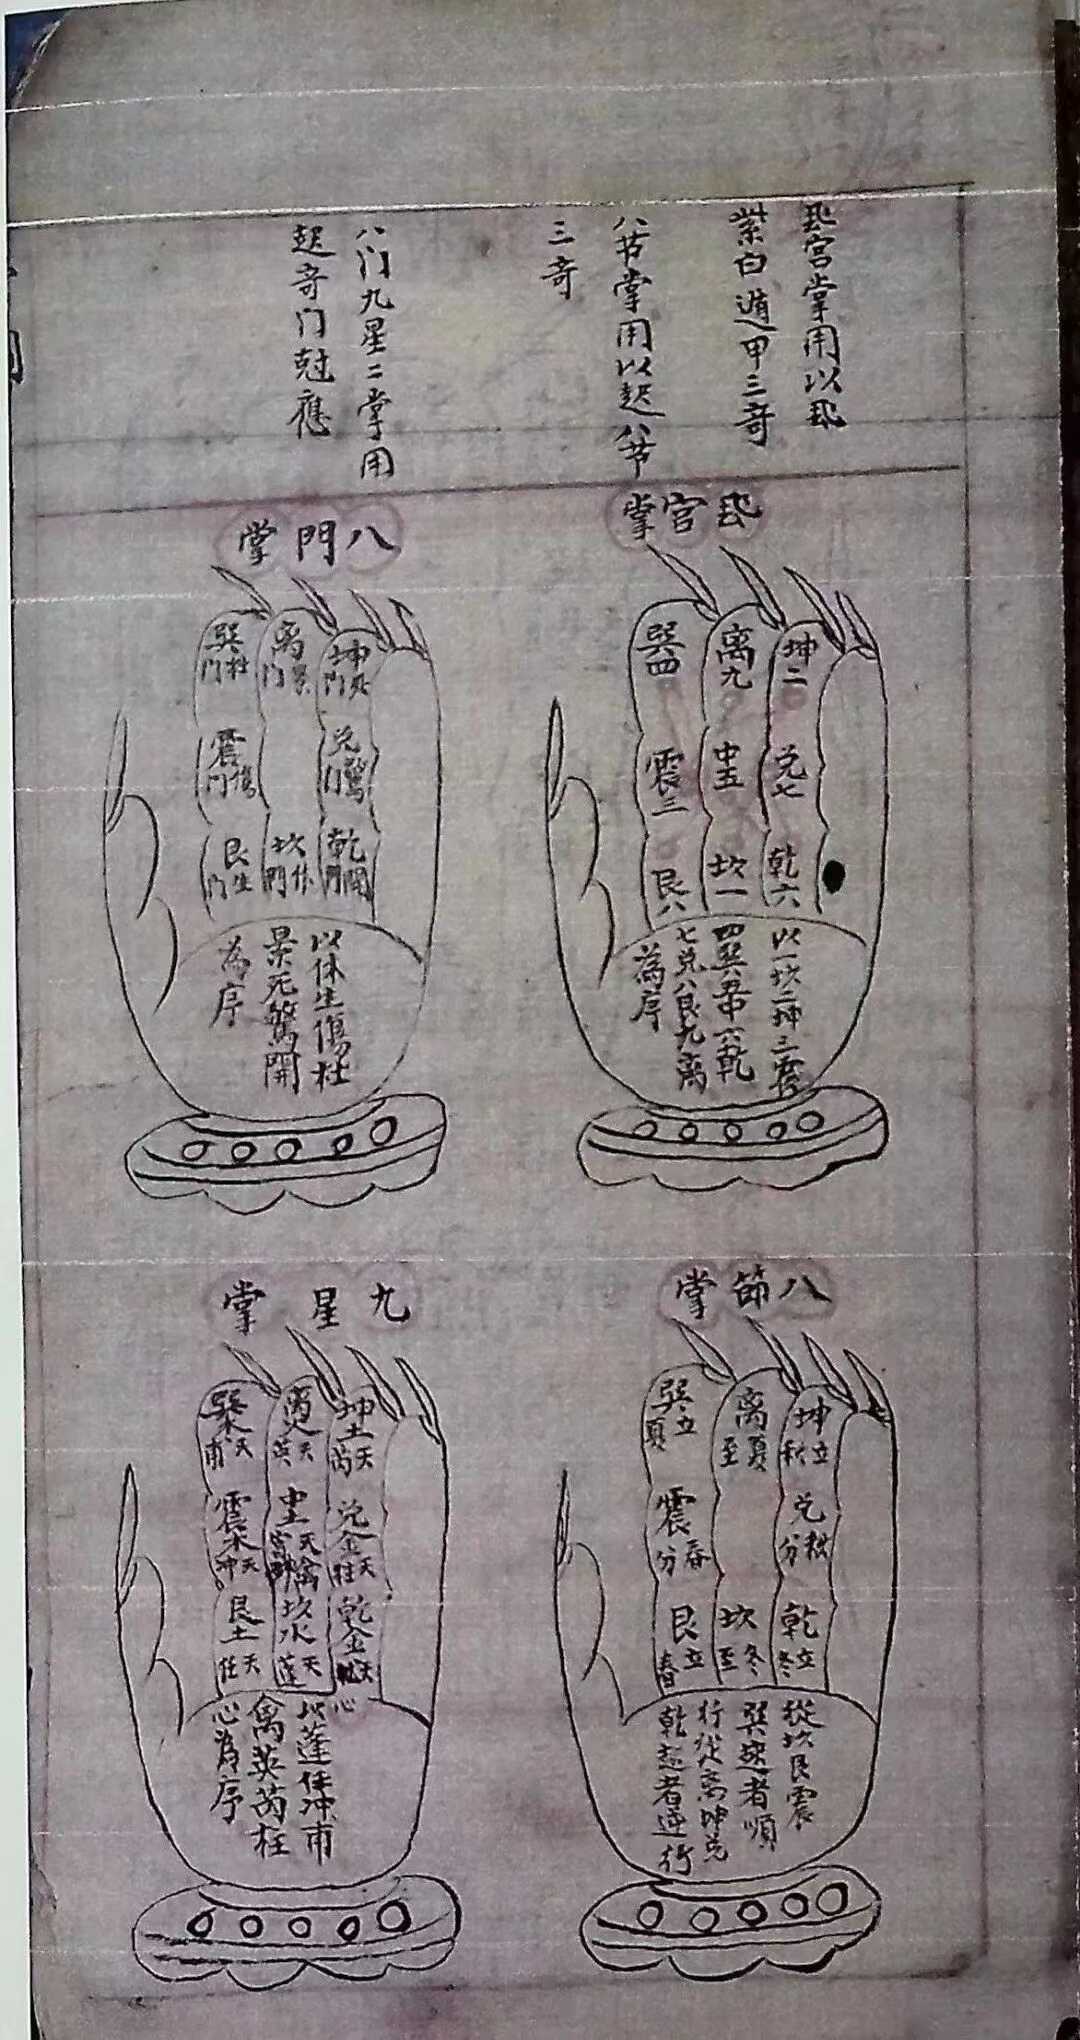 飛宮掌用以飛
紫白遁甲三奇
八节掌用以起八节
三奇
八门九星二掌用
起奇门尅應
飛宮掌
巽四
震三
艮八
离九
中五
坎一
坤二
兑七
乾六
以一坎二坤三震
四巽五中六乾
七兑八艮九离
為序
八門掌
巽杜门
震傷门
艮生门
离景门
坎休門
坤死门
兑驚门
乾開門
以休生傷杜
景死驚開
為序
八節掌
巽立夏
震春分
艮立春
离夏至
坎冬至
坤立秋
兑秋分
乾立冬
從坎艮震
巽起者順
行從离坤兑
乾起者逆行
九星掌
巽木天甫
震木天冲
艮土天任
离火天英
中土天禽
坎水天蓬
坤土天芮
兑金天柱
乾金天心
以蓬任冲甫
禽英芮柱
心為序